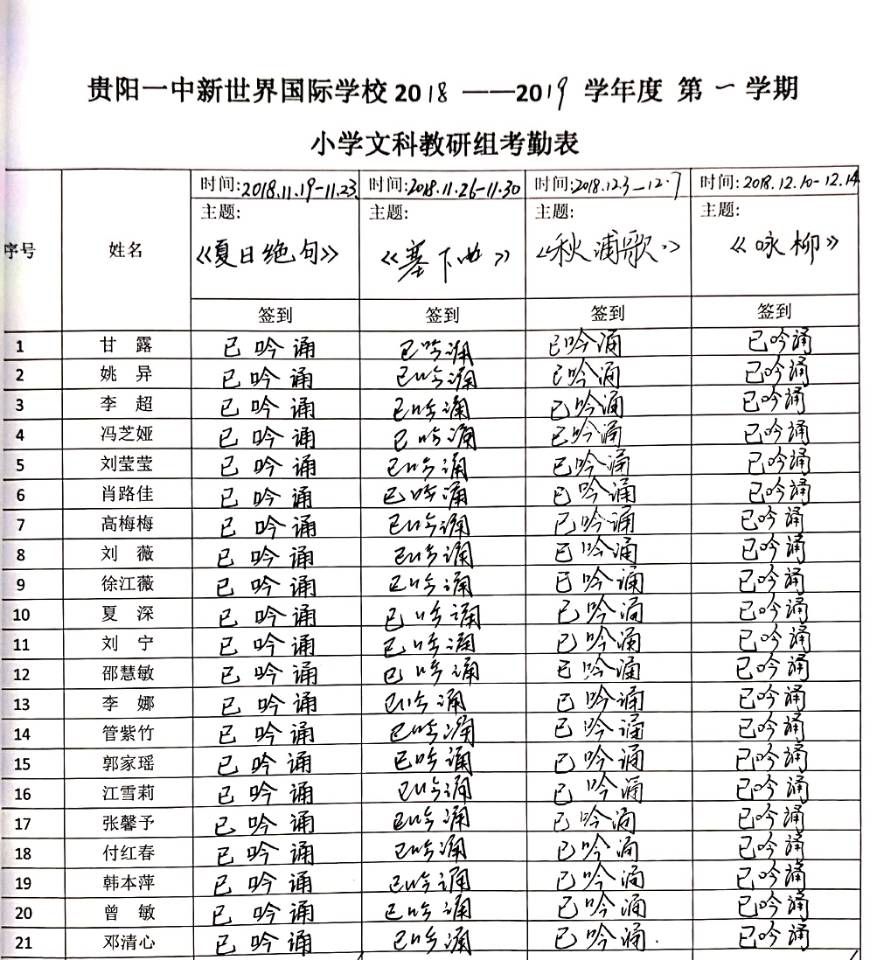 贵阳一中新世界国际学校2018——2019学年度 第一学期
小学文科教研组考勤表
序号 姓名 时间:2018.11.19-11.23. 时间:2018.11.26-11.30 时间:2018.12.3-12.7 时间:2018.12.10-12.14
主题: 主题: 主题: 主题:
《夏日绝句》 《塞下曲》 《秋浦歌》 《咏柳》
签到 签到 签到 签到
1 甘露 已吟诵 已吟诵 已吟诵 已吟诵
2 姚异 已吟诵 已吟诵 已吟诵 已吟诵
3 李超 已吟诵 已吟诵 已吟诵 已吟诵
4 冯芝娅 已吟诵 已吟诵 已吟诵 已吟诵
5 刘莹莹 已吟诵 已吟诵 已吟诵 已吟诵
6 肖路佳 已吟诵 已吟诵 已吟诵 已吟诵
7 高梅梅 已吟诵 已吟诵 已吟诵 已吟诵
8 刘薇 已吟诵 已吟诵 已吟诵 已吟诵
9 徐江薇 已吟诵 已吟诵 已吟诵 已吟诵
10 夏深 已吟诵 已吟诵 已吟诵 已吟诵
11 刘宁 已吟诵 已吟诵 已吟诵 已吟诵
12 邵慧敏 已吟诵 已吟诵 已吟诵 已吟诵
13 李娜 已吟诵 已吟诵 已吟诵 已吟诵
14 管紫竹 已吟诵 已吟诵 已吟诵 已吟诵
15 郭家瑶 已吟诵 已吟诵 已吟诵 已吟诵
16 江雪莉 已吟诵 已吟诵 已吟诵 已吟诵
17 张馨予 已吟诵 已吟诵 已吟诵 已吟诵
18 付红春 已吟诵 已吟诵 已吟诵 已吟诵
19 韩本萍 已吟诵 已吟诵 已吟诵 已吟诵
20 曾敏 已吟诵 已吟诵 已吟诵 已吟诵
21 邓清心 已吟诵 已吟诵 已吟诵 已吟诵